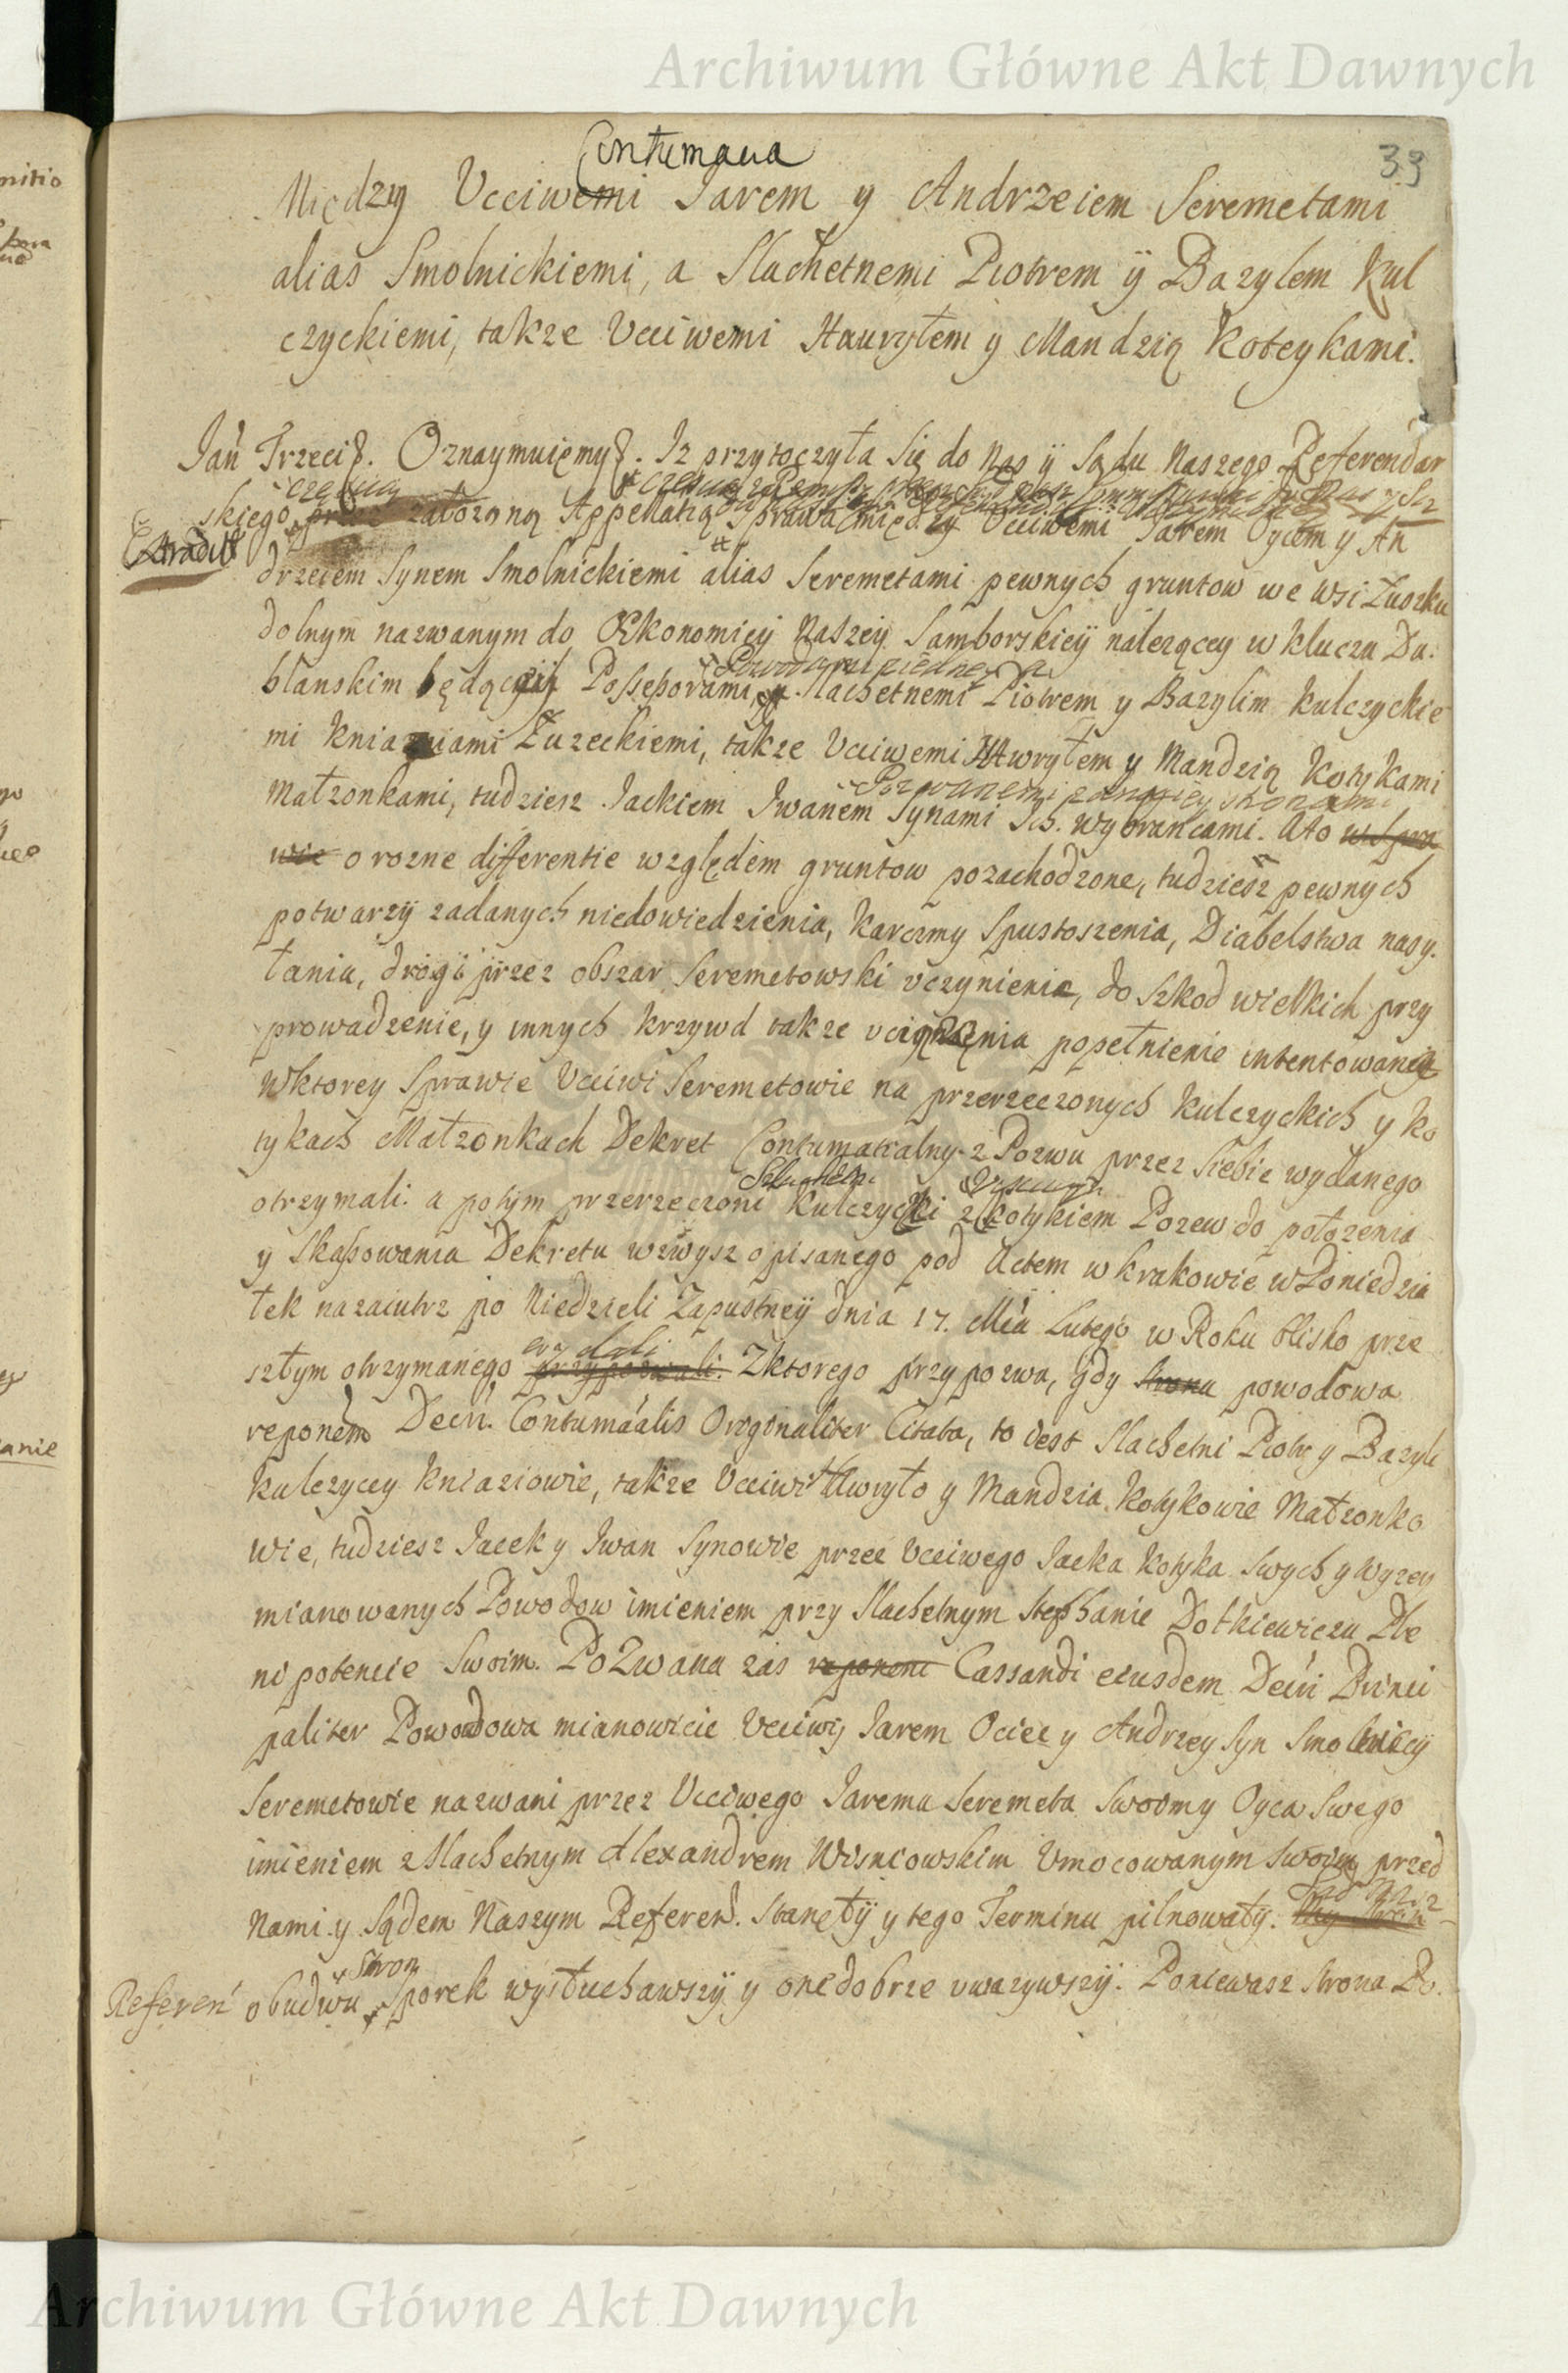 Archiwum Główne Akt Dawnych
39
Contumacia
Między Ucciwemi Jarem y Andrzeiem Seremetami
alias Smolnickiemi, a Slachetnemi Piotrem ÿ Bazylem Kul
czyckiemi, takze Ucciwemi Hawryłem y Mandzią Koteykami.
Jań Trzeci. Oznaymuięmy. Iz przytoczyła się do Nas ÿ Sądu Naszego Referendar
skiego załozoną Appellatią Sprawa między Ucciwemi Jarem Oycem y An
Extradit
drzeiem Synem Smolnickiemi alias Seremetami pewnych gruntow we wsi Łuozku
dolnym nazwanym do Œkonomiey Naszeÿ Samborskieÿ nalezącey w kluczu Du.
Powodami z iedney a
blanskim będących Possessorami, Slachetnemi Piotrem y Bazylim Kulczyckie
mi kniaziami Łuzeckiemi, takze Ucciwemi Hawryłem y Mandzią Kotykami
Pozwanemi z drugiey stronami
Małzonkami, tudziesz Jackiem Iwanem Synami Ich wybrancami. Ato w spra
wie o rozne differentie względem gruntow pozachodzone, tudziesz pewnych
potwarzÿ zadanych niedowiedzienia, karczmy Spustoszenia, Diabelstwa nasy.
łania, drogi przez obszar Seremetowski uczynienie, do Szkod wielkich przy
prowadzenie, y innych krzywd takze uciązenia popełnienie intentowaney
Wktorey Sprawie Ucciwi Seremetowie na przerzeczonych Kulczyckich y Ko
tykach Małzonkach Dekret Contumatialny z Pozwu przez Siebie wydanego
Szlachetni Ucciwym
otrzymali: a potym przerzeczoni Kulczycki z Kotykiem Pozew do połozenia
y Skassowania Dekretu wzwysz opisanego pod Actem w Krakowie w Poniedzia
łek nazaiutrz po Niedzieli Zapustneÿ dnia 17. Mca Lutego w Roku blisko prze
wydali
szłym otrzymanego przypozwali. Zktorego przypozwa, gdy Strona powodowa
reponem Decri. Contumacialis Originaliter Citata, to iest Slachetni Piotr y Bazyli
Kulczyccy Kniaziowie, takze Ucciwi Hawryło y Mandzia Kotykowie Małzonko
wie, tudziesz Jacek y Iwan Synowie przez Ucciwego Jacka Kotyka Swych y wyzey
mianowanych Powodow imieniem przy Slachetnym Stephanie Dotkiewiczu Ple
nipotencie Swoim. Pozwana zas reponeni Cassandi eiusdem Decri Princi
paliter Powodowa mianowicie Ucciwi Jarem Ociec y Andrzey Syn Smolniccÿ
Seremetowie nazwani przez Ucciwego Jarema Seremeta Swoimy Oyca Swego
imieniem z Slachetnym Alexandrem Wisniowskim Umocowanym Swoim przed
Nami y Sądem Naszym Referen. Stanęłÿ y tego Terminu pilnowałÿ.
Stron
Referen obudwu Sporek wysłuchawszÿ y one dobrze uwazywszÿ. Poniewasz Strona Po.
Archiwum Główne Akt Dawnych